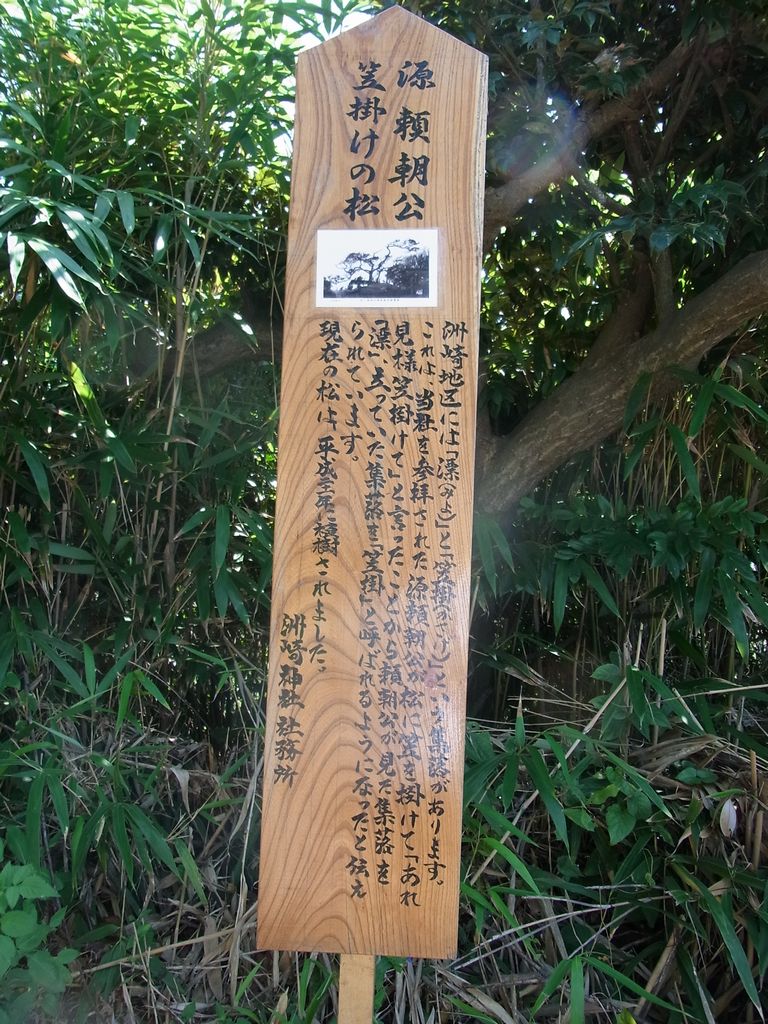 源 頼朝公
笠掛けの松
洲崎地区には「澪(みよ)」と「笠掛(かさがけ)」という集落があります。
これは、当社を参拝された源頼朝公が松に笠を掛けて「あれ
見様笠掛けて」と言ったことから頼朝公が見た集落を
「澪」、立っていた集落を「笠掛」と呼ばれるようになったと伝え
られています。
現在の松は、平成三年に植樹されました。
洲崎神社 社務所